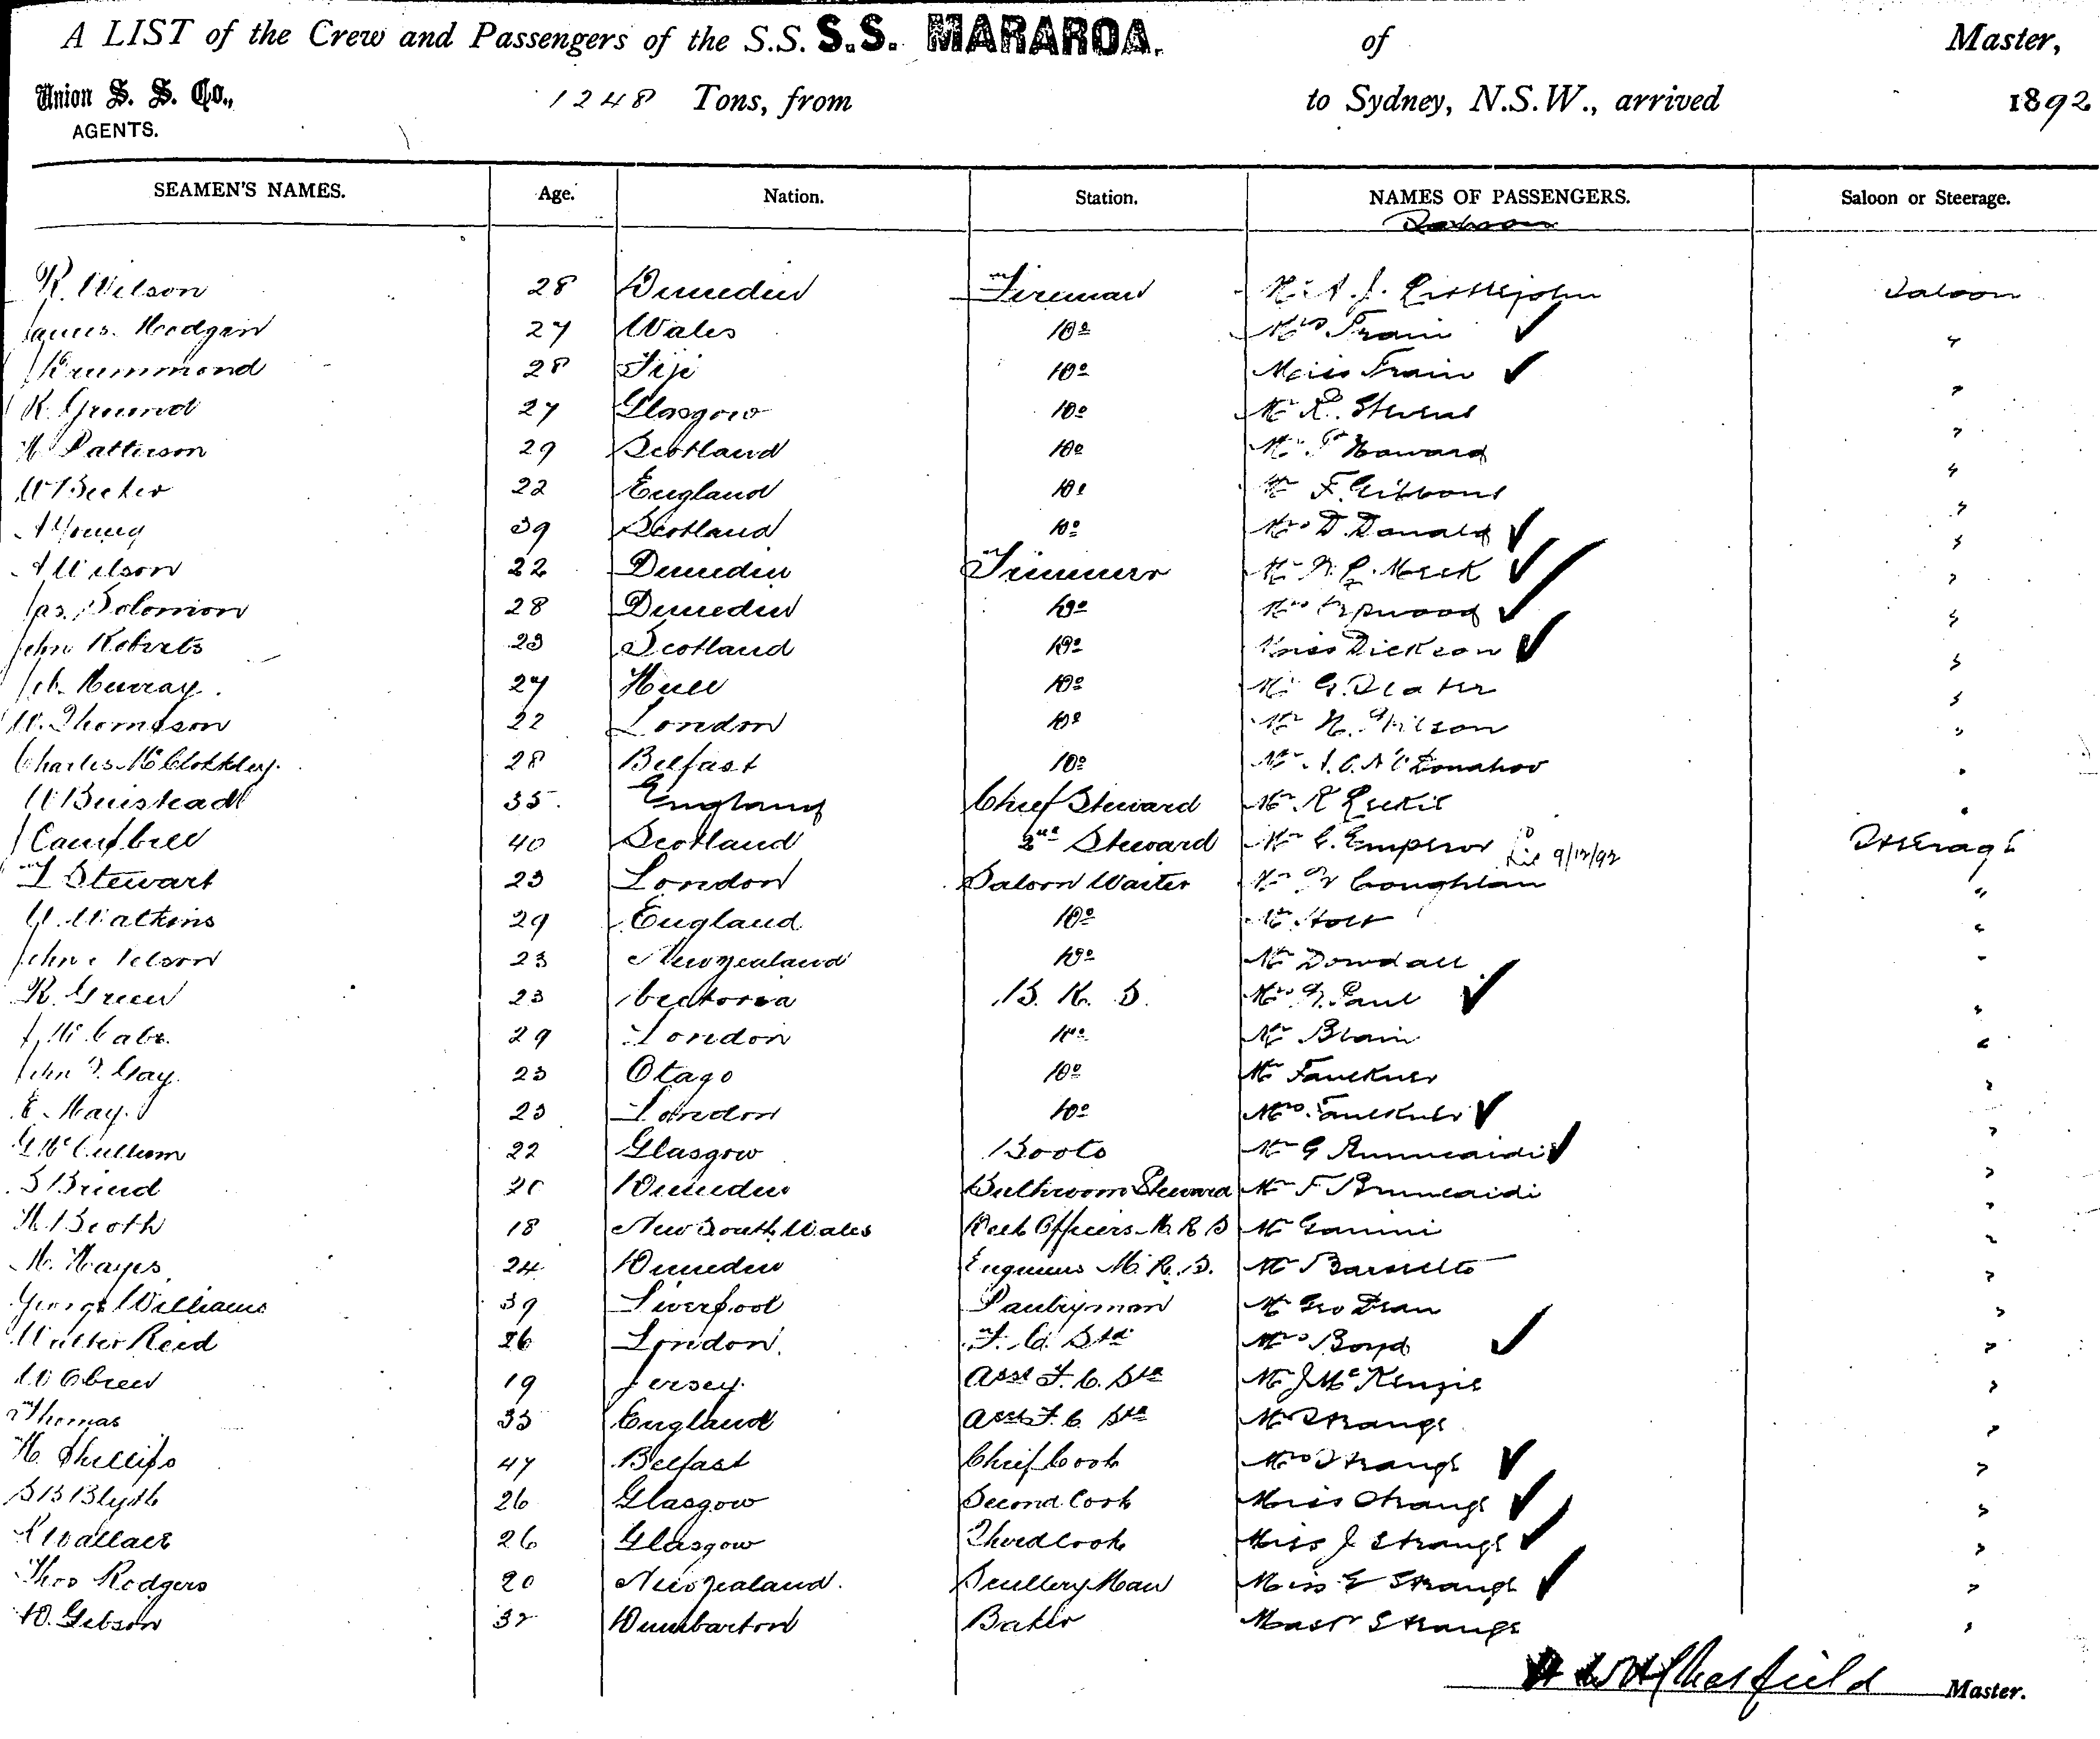 A LIST of the Crew and Passengers of the S.S. S.S. MARAROA. of Master,
Union S. S. Co., 1248 Tons, from to Sydney, N.S.W., arrived 1892
AGENTS.
SEAMEN'S NAMES. Age. Nation. Station. NAMES OF PASSENGERS. Saloon or Steerage.
R. Wilson 28 Dunedin Fireman Littlejohn Saloon
James Hodgen 27 Wales Do Mrs Train ✓ "
J Drummond 28 Fiji Do Miss Train ✓ "
R. Ground 27 Glasgow Do Mr R. Stevens "
H Patterson 29 Scotland Do Mr Howard "
W Becker 22 England Do Mr F. Gibbons "
A Young 39 Scotland Do Mrs D. Donald ✓ "
A Wilson 22 Dunedin Trimmers Mr Meek ✓ "
Jas. Solomon 28 Dunedin Do Mrs ✓ "
John Roberts 23 Scotland Do Miss Dickson ✓ "
Job. Murray. 27 Hull Do Mr G. Slater "
W. Thomason 22 London Do Mr H. Wilson "
Charles McCloskley. 28 Belfast Do Mr "
W Buistead 35. England Chief Steward Mr R Leckie "
J Campbell 40 Scotland 2nd Steward Mr C. Emperor 9/12/92 Steerage
T Stewart 23 London Saloon Waiter Mr Coughlan "
W. Watkins 29 England Do Mr Holt "
John Nelson 23 New Zealand Do Mr Dowdall "
R. Green 23 Victoria B. R. S. Mrs Paul ✓ "
J. McCabe. 29 London Do Mr Blain "
John T. Gay. 23 Otago Do Mr Faulkner "
E. May. 23 London Do Mrs Faulkner ✓ "
G McCullum 22 Glasgow Boots Mr G ✓ "
S Brind 20 Dunedin Bathroom Steward Mr F "
H Booth 18 New South Wales Deck Officers M R S Mr Ganini "
M. Hayes 24 Dunedin Engineers M. R. S. Mr "
George Williams 39 Liverpool Pantryman Mr Geo Dean "
Walter Reed 26 London. F. C. Std Mrs Boyd ✓ "
W Obree 19 Jersey. Asst F. C. Std Mr J McKenzie "
Thomas 33 England Asst F. C. Std Mr Strange "
H. Phillips 47 Belfast Chief Cook Mrs Strange ✓ "
S B Blyth 26 Glasgow Second Cook Miss Strange ✓ "
R Wallace 26 Glasgow Third Cook Miss J Strange ✓ "
Thos Rodgers 20 New Zealand. Scullery Man Miss E Strange ✓ "
D. Gibson 32 Dumbarton Baker Mast Strange "
Chatfield Master.